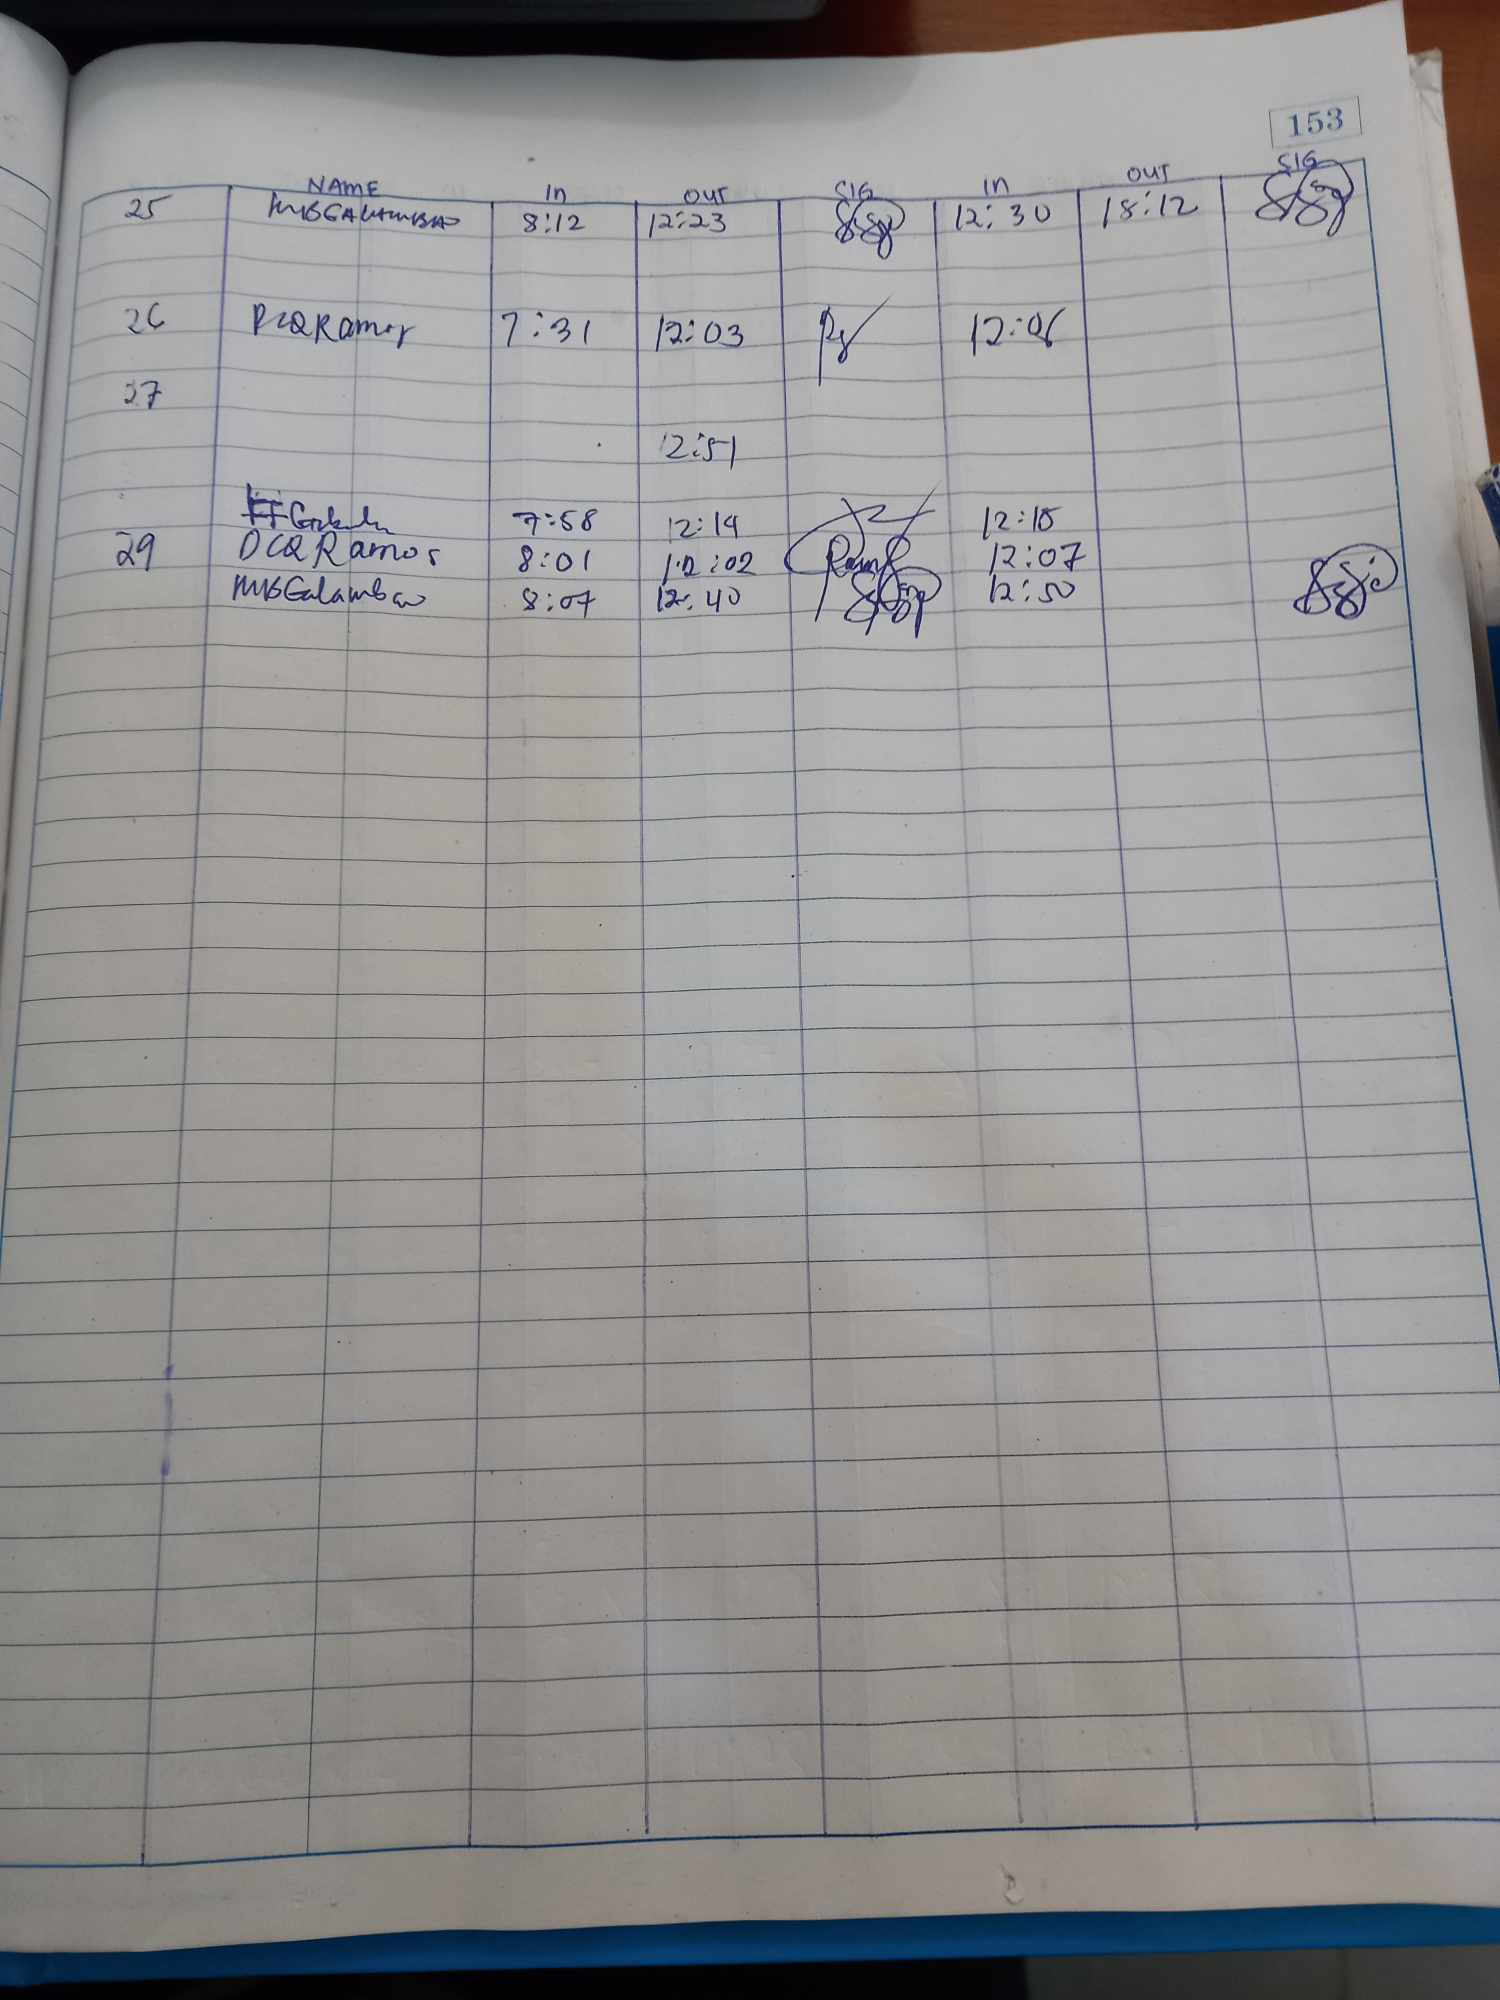 153
NAME IN OUT SIG IN OUT SIG
25 MBGALAMBAO 8:12 12:23 12:30 18:12
26 DCQRamos 7:31 12:03 12:06
27
12:51
7:58 12:14 12:15
29 DCQRamos 8:01 12:02 12:07
MBGalambao 8:07 12:40 12:50